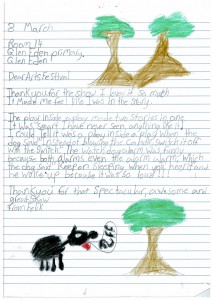 8 March
Room 14
Glen Eden primary,
Glen Eden!
Dear Arts Festival
Thankyou for the show I love it so much
It Made Me feel like I was in the story.
The play inside a play made two stories in one
It was smart I have never seen anything like it,
I could tell it was a play inside a play when the
dog said
with the switch". The watch dog alarm was funny
because both alarms even the alarm alarm, which
the dog said "keep on sleeping when you heard it and
he woke up because it was so loud!!!
Thankyou for that spectacular, awesome and
great show
from Felix